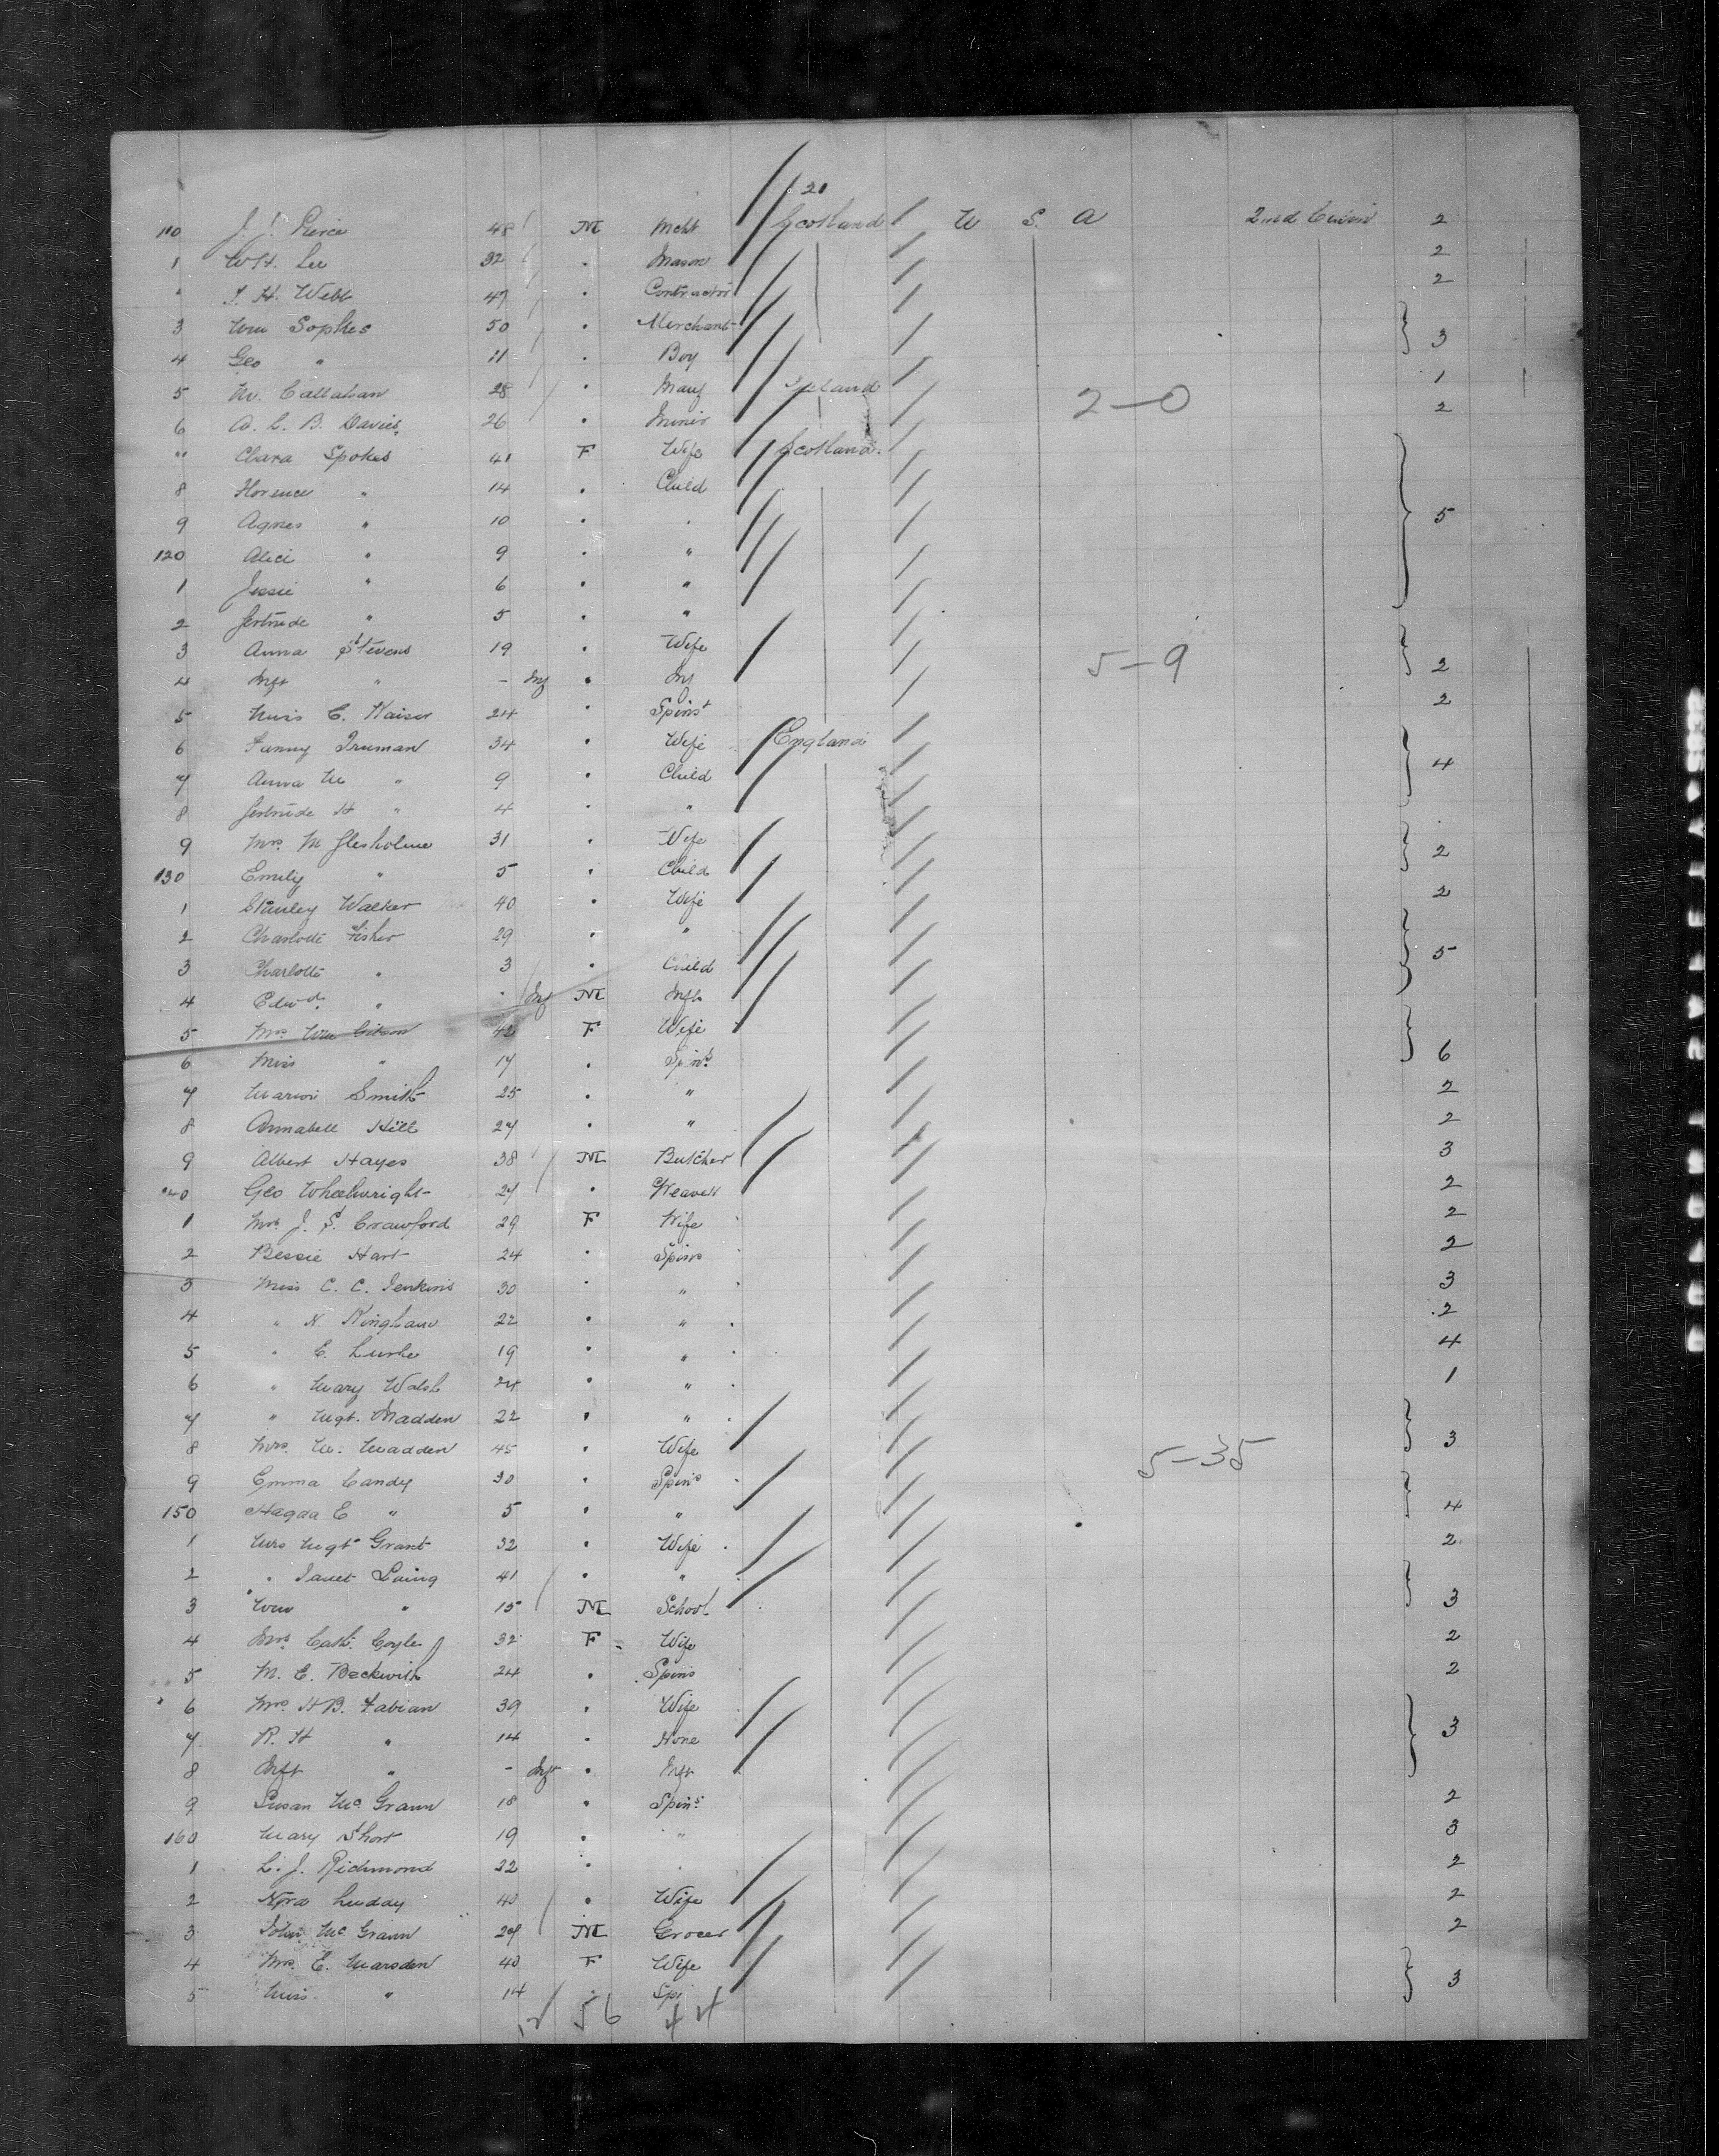 21
110 J. J. Pierce 48 M Mcht Scotland U S. A 2nd Cabin 2
1 W H. Lee 32 " Mason 2
" J. H. Webb 47 " Contractor 2
3 Wm Sophes 50 " Merchant
4 Geo " 11 " Boy 3
5 M. Callahan 28 " Ireland 1
6 A. C. B. Davies 26 " Miner 2
2-0
" Clara Spokes 41 F Wife Scotland
8 Florence " 14 " Child
9 Agnes " 10 " " 5
120 Alice " 9 " "
1 Jessie " 6 " "
2 Gertrude " 5 " "
3 Anna Stevens 19 " Wife
4 Inft " - Inf " Inf 2
5-9
5 Miss C. Kaiser 24 " Spinst 2
6 Fanny Truman 34 " Wife England
7 Anna M " 9 " Child 4
8 Gertrude H " 4 " "
9 Mrs. M Glesholme 31 " Wife 2
130 Emily " 5 " Child
1 Stanley Walker 40 " Wife 2
2 Charlotte Fisher 29 " "
3 Charlotte " 3 " Child 5
4 Edwd. " " Inf M Inft
5 Mrs. Wm Gibson 42 F Wife
6 Miss " 17 " Spins. 6
7 Marion Smith 25 " " 2
8 Annabell Hill 27 " " 2
9 Albert Hayes 38 M Butcher 3
40 Geo Wheelwright 27 " Weaver 2
1 Mrs. J. S. Crawford 29 F Wife 2
2 Bessie Hart 24 " Spins 2
3 Miss C. C. Jenkins 30 " " 3
4 " N. Kingham 22 " " 2
5 " E. 19 " " 4
6 " Mary Walsh 24 " " 1
7 " Mgt. Madden 22 " "
8 Mrs. M. Madden 45 " Wife 3
5-35
9 Emma Candy 30 " Spins
150 E " 5 " " 4
1 Mrs Mgt Grant 32 " Wife 2
2 " Janet Laing 41 " "
3 Wm " 15 M School 3
4 Mrs. Cath. Coyle 32 F Wife 2
5 M. E. Beckwith 24 " Spins 2
6 Mrs. H B. Fabian 39 " Wife
7 R. H " 14 " None 3
8 Inft " - Inft " Inft
9 Susan McGrann 18 " Spins 2
160 Mary Short 19 " " 3
1 L. J. Richmond 22 " " 2
2 Nora 40 " Wife 2
3 John McGrann 29 M Grocer 2
4 Mrs. E. Marsden 40 F Wife
5 Miss " 14 " Spi 3
12 56 44